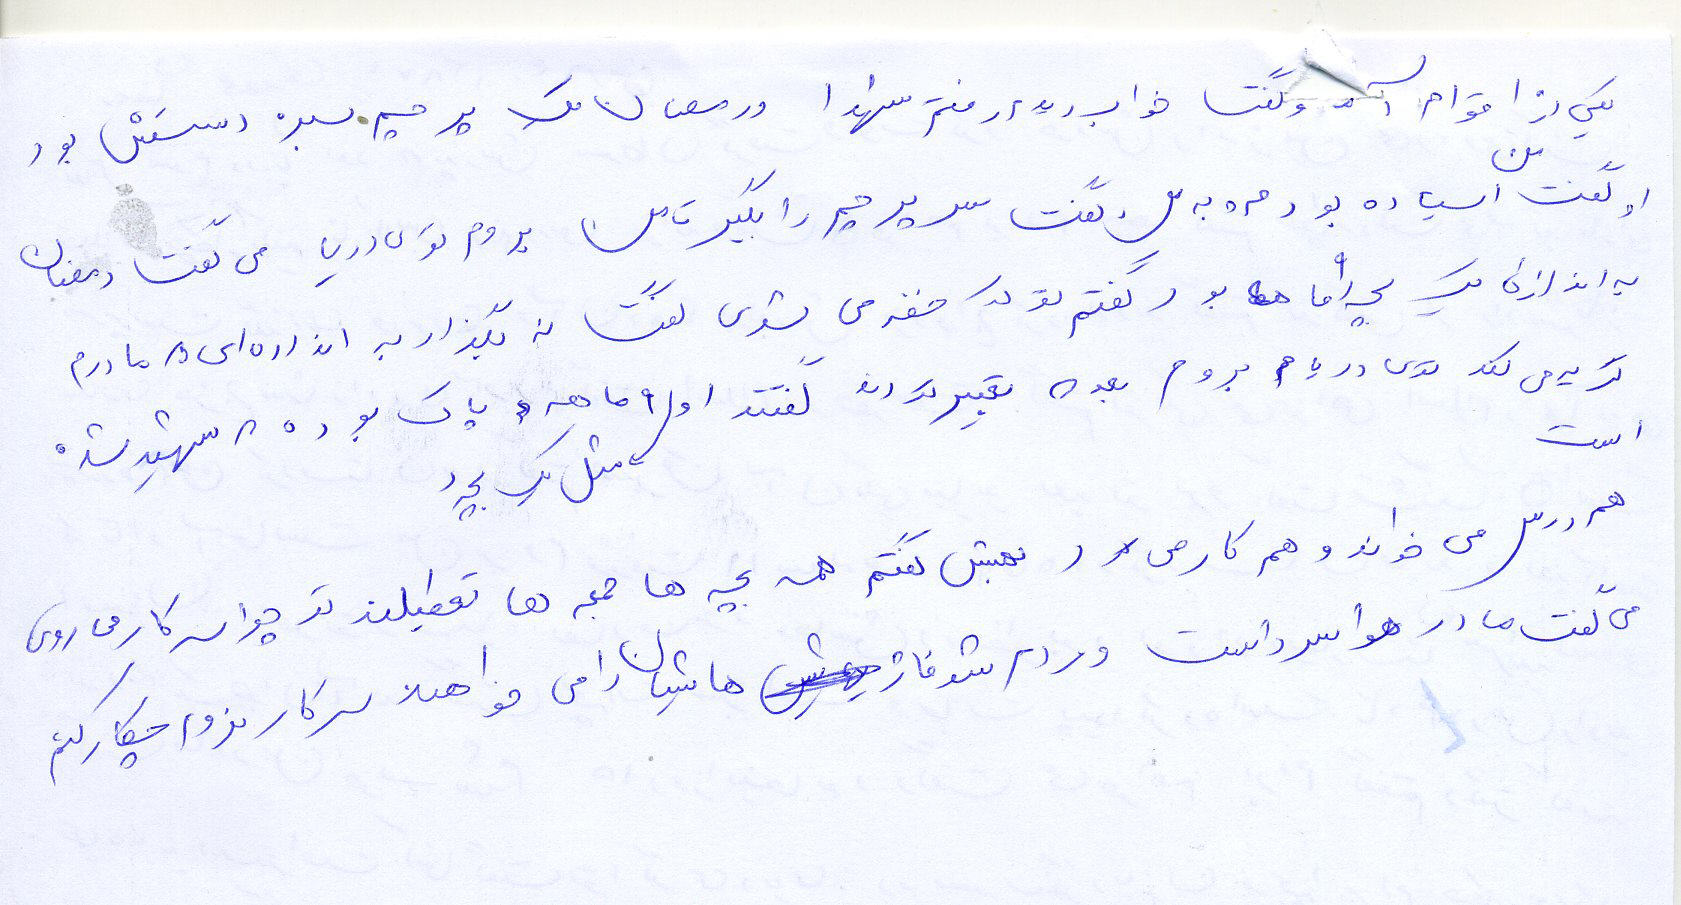 یکی از اقوام آمد و گفت خواب دیدم رفتم شهدا و رمضان یک پرچم سبز دستش بود
من
او گفت استاده بود مرد به من گفت سر پرچم را بگیر تا من بروم توی دریا می گفت رمضان
به اندازه یک بچه ۹ ماهه بود گفتم تو که خفه می شوی گفت نه بگذار به اندازه ای مادرم
گریه می کند توی دریا بروم بعد تعبیر کردند گفتند او ۹ ماهه پاک بوده شهید شده
است
مثل یک بچه
هم درس می خواند و هم کار می کرد بهش گفتم همه بچه ها جمعه ها تعطیلند تو چرا سر کار می روی
می گفت مادر هوا سرد است مردم شوفاژ هایشان را می خواهند سر کار نروم چکار کنم